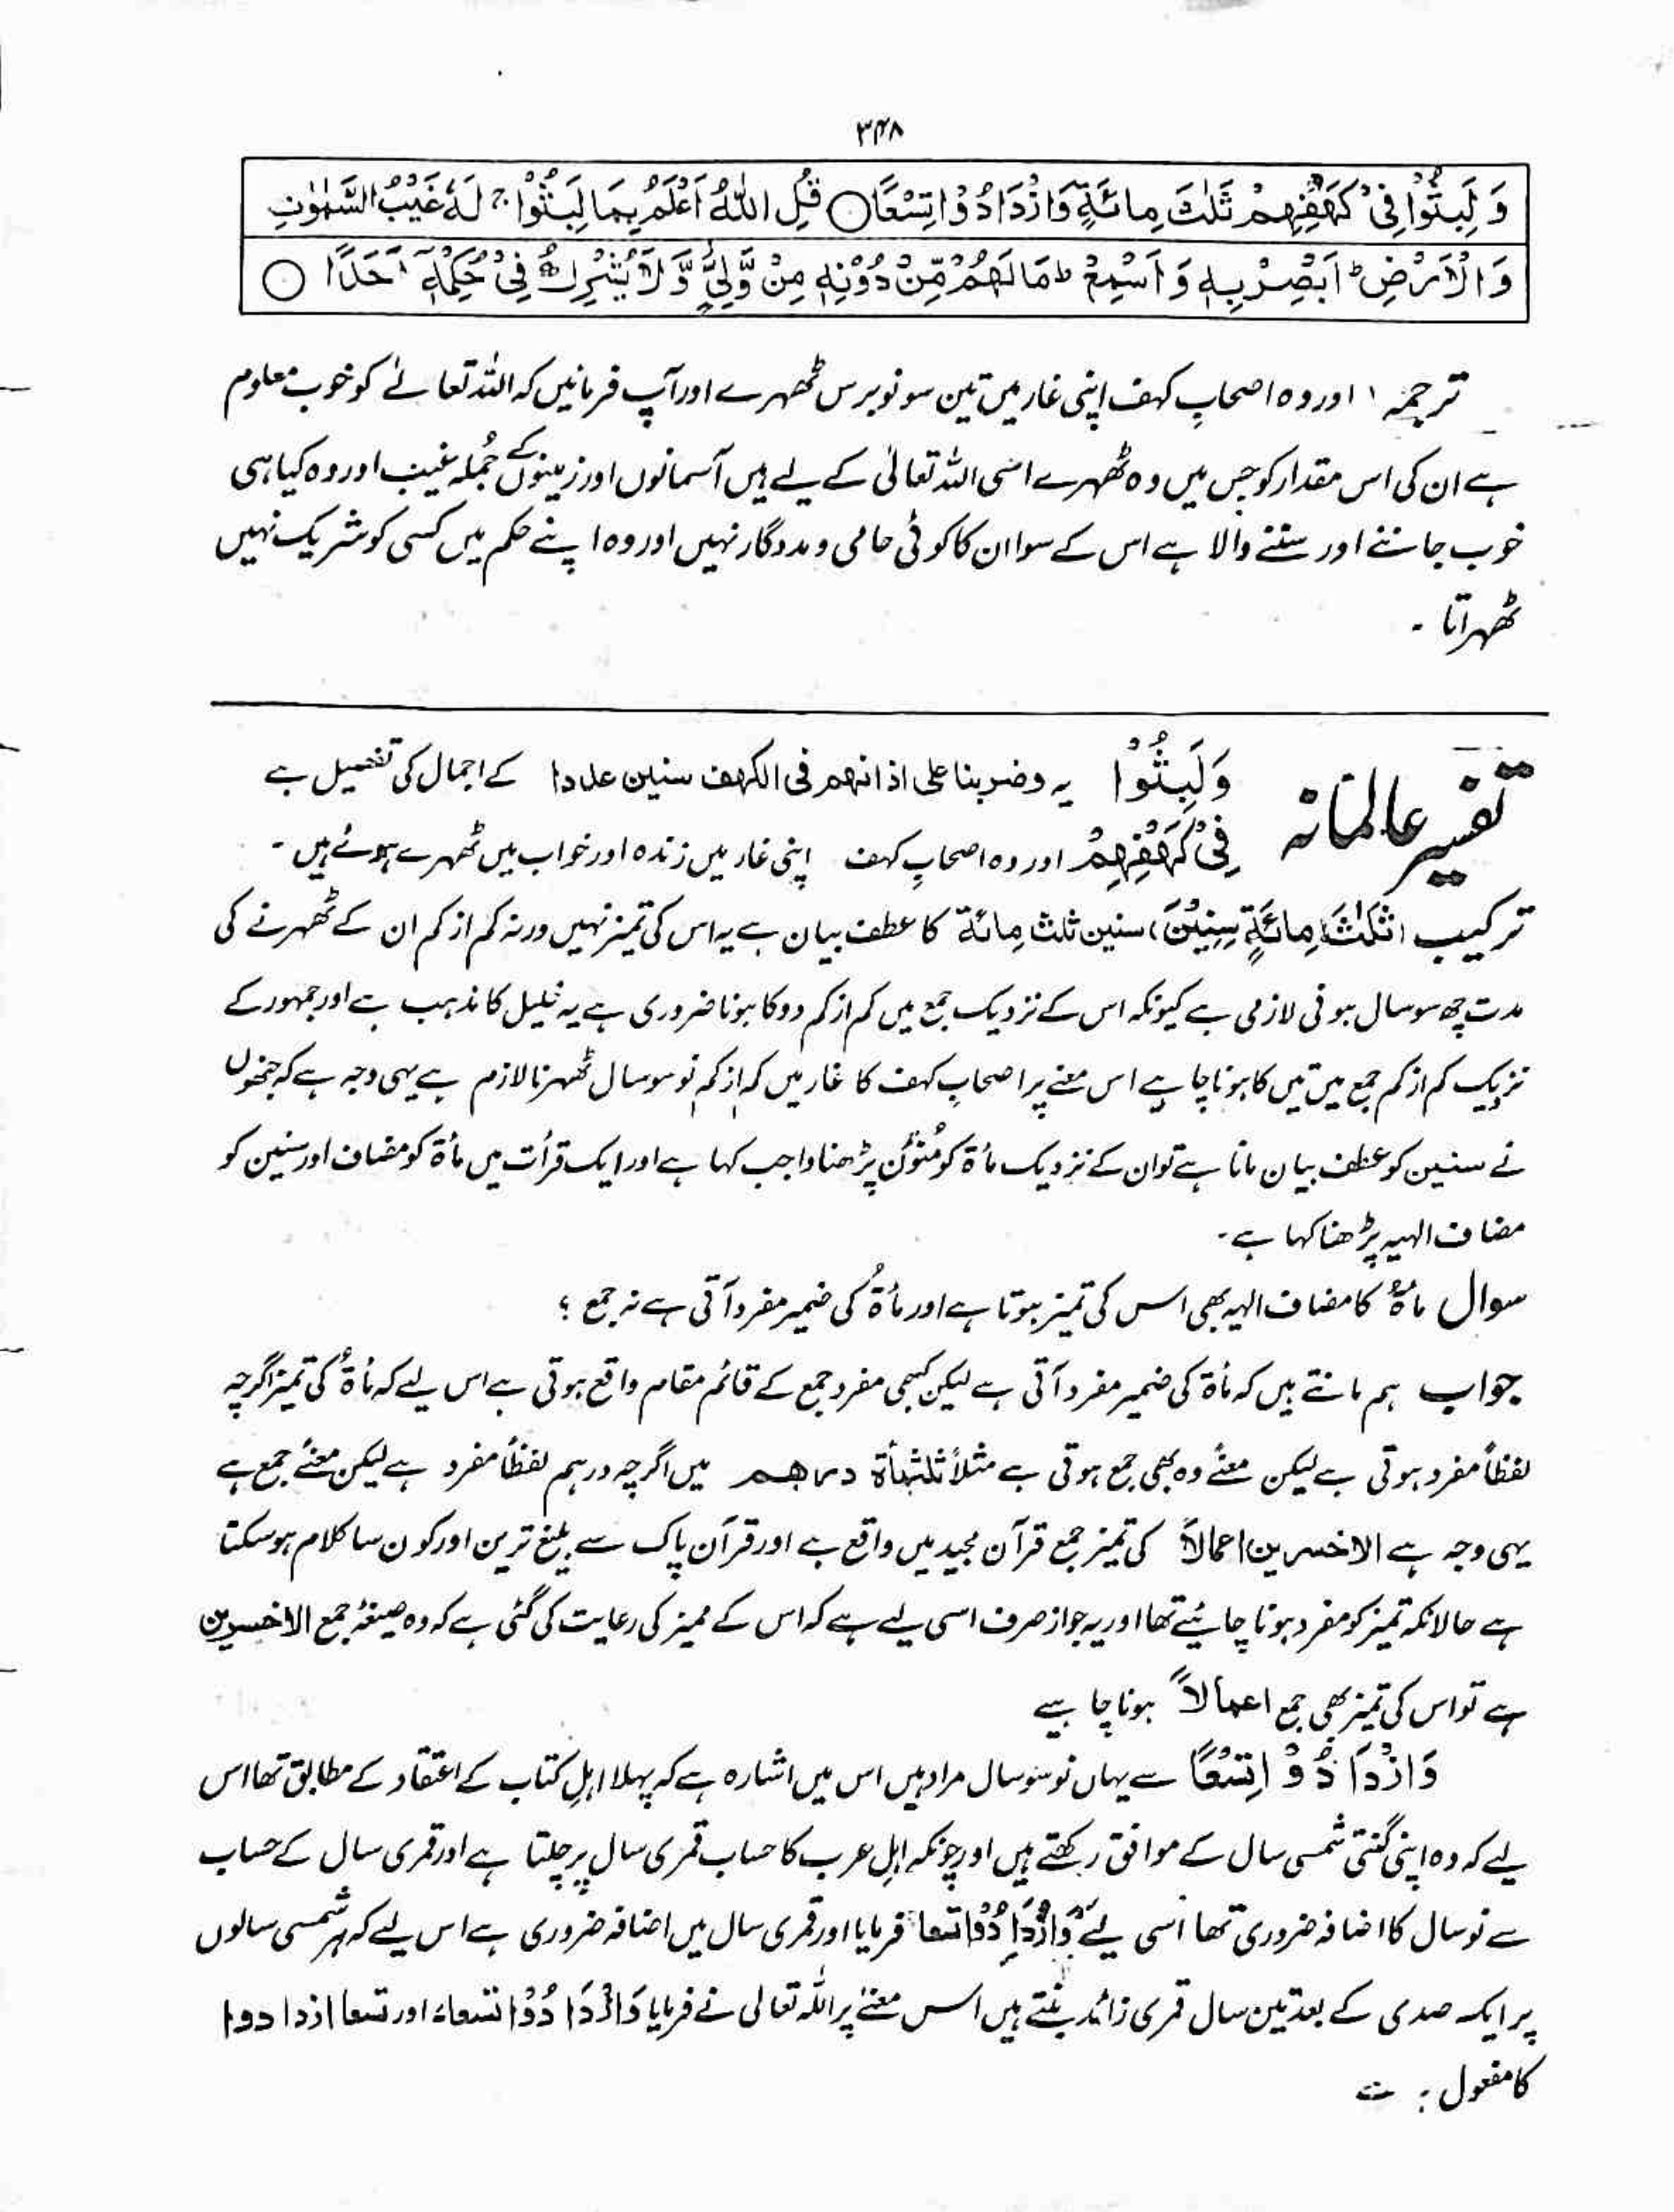 ۳۴۸
وَ لَبِثُوْا فِیْ كَهْفِهِمْ ثَلٰثَ مِائَةٍ وَازْدَادُوْا تِسْعًا ○ قُلِ اللّٰهُ اَعْلَمُ بِمَا لَبِثُوْا ۚ لَهٗ غَیْبُ السَّمٰوٰتِ
وَ الْاَرْضِ ؕ اَبْصِرْ بِهٖ وَ اَسْمِعْ ؕ مَا لَهُمْ مِّنْ دُوْنِهٖ مِنْ وَّلِیٍّ وَّ لَا یُشْرِكُ فِیْ حُكْمِهٖۤ اَحَدًا ○
ترجمہ ، اور وہ اصحابِ کہف اپنی غار میں تین سو نو برس ٹھہرے اور آپ فرمائیں کہ اللہ تعالےٰ کو خوب معلوم
ہے ان کی اس مقدار کو جس میں وہ ٹھہرے اسی اللہ تعالیٰ کے لیے ہیں آسمانوں اور زمینوں کے جُملہ غیب اور وہ کیا ہی
خوب جاننے اور سننے والا ہے اس کے سوا ان کا کوئی حامی و مددگار نہیں اور وہ اپنے حکم میں کسی کو شریک نہیں
ٹھہراتا ۔
تفسیر عالمانہ وَلَبِثُوْا یہ وضربنا علی اذانهم فی الكهف سنین عددا کے اجمال کی تفصیل ہے
فِیْ كَهْفِهِمْ اور وہ اصحابِ کہف اپنی غار میں زندہ اور خواب میں ٹھہرے ہوئے ہیں ۔
ترکیب (ثَلٰثَ مِائَةٍ سِنِیْنَ) سنین ثلث مائة کا عطف بیان ہے یہ اس کی تمیز نہیں ورنہ کم از کم ان کے ٹھہرنے کی
مدت چھ سو سال ہونی لازمی ہے کیونکہ اس کے نزدیک جمع میں کم از کم دو کا ہونا ضروری ہے یہ خلیل کا مذہب ہے اور جمہور کے
نزدیک کم از کم جمع میں تین کا ہونا چاہیے اس معنے پر اصحابِ کہف کا غار میں کم از کم نو سو سال ٹھہرنا لازم ہے یہی وجہ ہے کہ جنھوں
نے سنین کو عطف بیان مانا ہے تو ان کے نزدیک مأۃ کو مُنَوَّن پڑھنا واجب کہا ہے اور ایک قرأت میں مأۃ کو مضاف اور سنین کو
مضاف الیہ پڑھنا کہا ہے ۔
سوال مأۃٌ کا مضاف الیہ بھی اس کی تمیز ہوتا ہے اور مأۃُ کی ضمیر مفرد آتی ہے نہ جمع ؟
جواب ہم مانتے ہیں کہ مأۃ کی ضمیر مفرد آتی ہے لیکن کبھی مفرد جمع کے قائم مقام واقع ہوتی ہے اس لیے کہ مأۃٌ کی تمیز اگرچہ
لفظاً مفرد ہوتی ہے لیکن معنےً وہ بھی جمع ہوتی ہے مثلاً ثلثمأة دراهم میں اگرچہ درہم لفظاً مفرد ہے لیکن معنےً جمع ہے
یہی وجہ ہے الاخسرین اعمالاً کی تمیز جمع قرآن مجید میں واقع ہے اور قرآن پاک سے بلیغ ترین اور کون سا کلام ہو سکتا
ہے حالانکہ تمیز کو مفرد ہونا چاہئیے تھا اور یہ جواز صرف اسی لیے ہے کہ اس کے ممیز کی رعایت کی گئی ہے کہ وہ صیغۂ جمع الاخسرین
ہے تو اس کی تمیز بھی جمع اعمالاً ہونا چاہیے
وَازْدَادُوْا تِسْعًا سے یہاں نو سو سال مراد ہیں اس میں اشارہ ہے کہ پہلا اہلِ کتاب کے اعتقاد کے مطابق تھا اس
لیے کہ وہ اپنی گنتی شمسی سال کے موافق رکھتے ہیں اور چونکہ اہلِ عرب کا حساب قمری سال پر چلتا ہے اور قمری سال کے حساب
سے نو سال کا اضافہ ضروری تھا اسی لیے وَازْدَادُوْا تسعا فرمایا اور قمری سال میں اضافہ ضروری ہے اس لیے کہ ہر شمسی سالوں
پر ایک صدی کے بعد تین سال قمری زائد بنتے ہیں اس معنےٰ پر اللہ تعالیٰ نے فرمایا وَازْدَادُوْا تسعاً اور تسعا ازدادوا
کا مفعول :